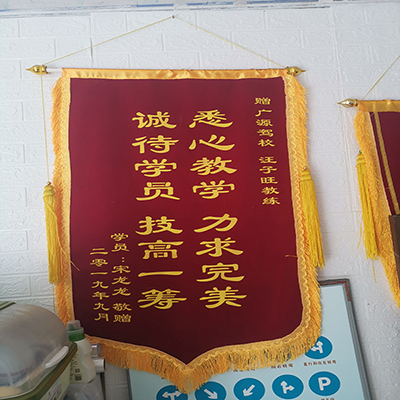 赠广源驾校 汪子旺教练
悉心教学 力求完美
诚待学员 技高一筹
学员：宋龙龙 敬赠
二零一九年九月